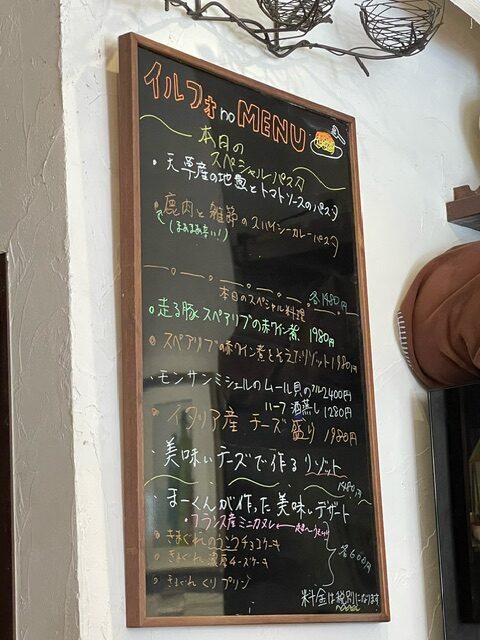 イルフォ no MENU
本日の
スペシャルパスタ
・天草産の地魚とトマトソースのパスタ
・鹿肉と雑節のスパイシーカレーパスタ
(まぁまぁ辛い!)
各1480円
本日のスペシャル料理
・走る豚スペアリブの赤ワイン煮 1980円
・スペアリブの赤ワイン煮をそえたリゾット1980円
・モンサンミシェルのムール貝の フル2400円
ハーフ 酒蒸し 1280円
・イタリア産 チーズ盛り 1980円
・美味いチーズで作るリゾット
1480円
・まーくんが作った美味いデザート
・フランス産ミニカヌレ
・きまぐれのチョコケーキ
・きまぐれ濃厚チーズケーキ
・きまぐれ くりプリン
各600円
料金は税別になります